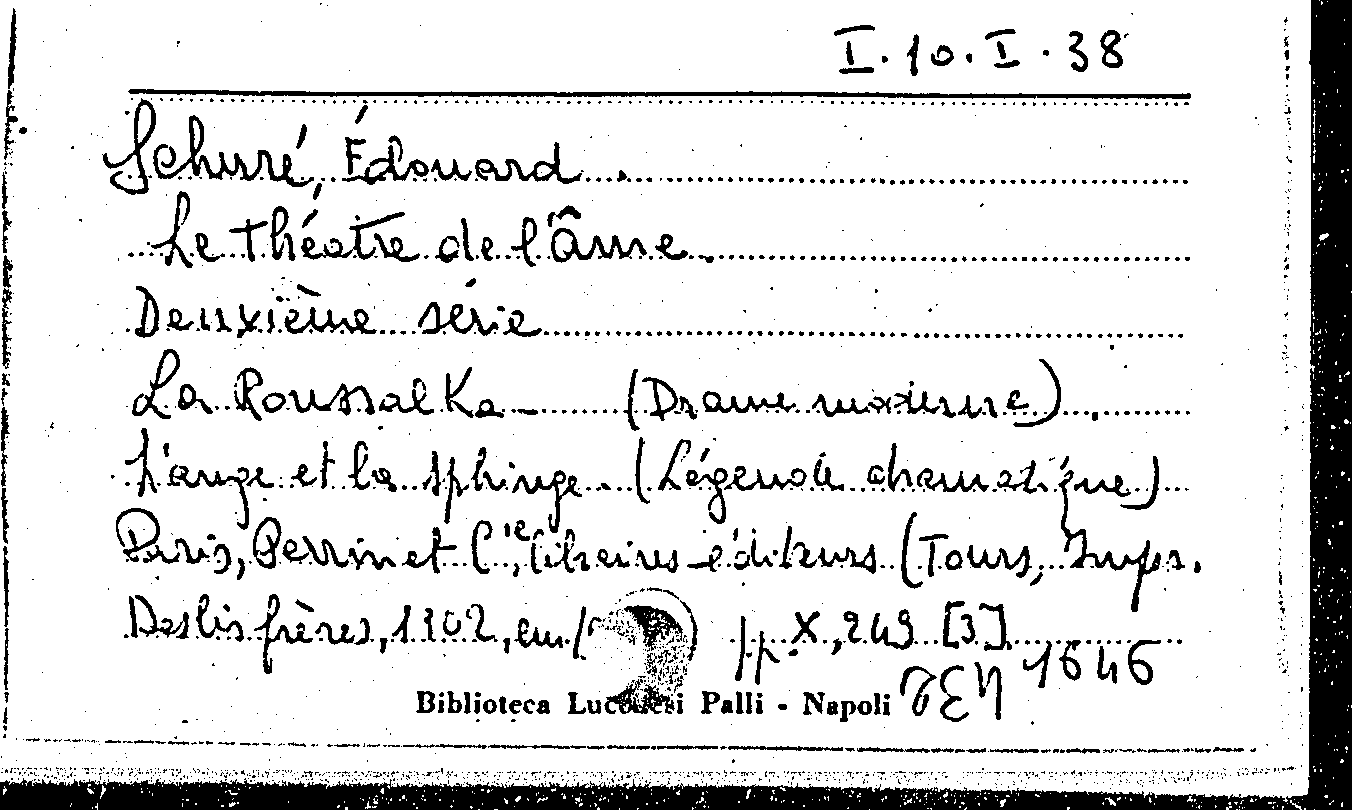 I.10.I.38
Schuré, Édouard.
Le théatre de l'Âme.
Deuxième série
La Roussalka - (Drame moderne).
L'ange et la sphinge. (Légende dramatique)
Paris, Perrin et C.ie, libraires-éditeurs (Tours, Impr.
Deslis frères, 1902, cm pp. X, 249 [3]
Biblioteca Lucchesi Palli - Napoli
1646